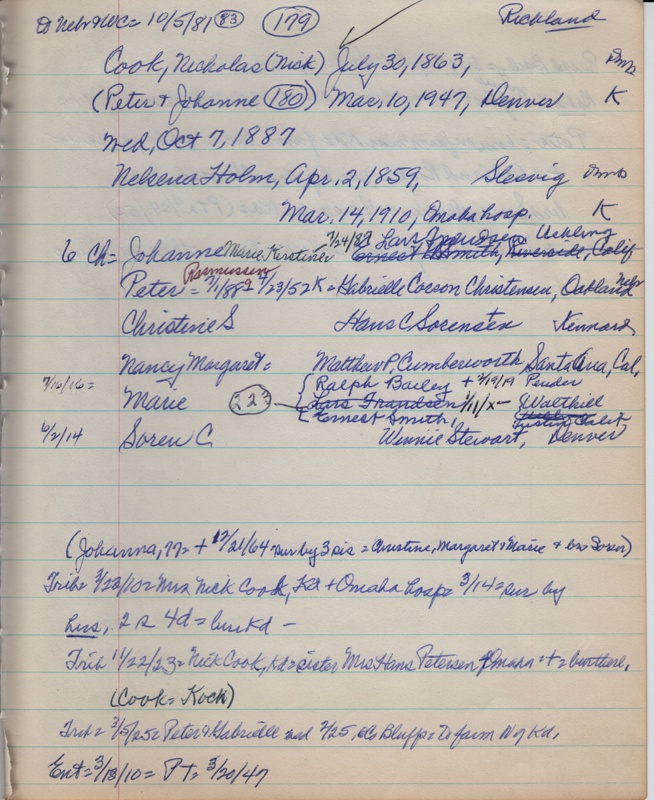 to Nebr & WC = 10/5/81 (83) (179) Richland
Cook, Nicholas (Nick) July 30, 1863,
(Peter & Johanne (180)) Mar. 10, 1947, Denver K
Wed, Oct 7, 1887
Nelseena Holm, Apr. 2, 1859, Slesvig
Mar. 14, 1910, Omaha hosp. K
6 Ch = Johanne Marie Kerstine 7/24/87 Lars Uehling
Ernest Smith, Riverside, Calif
Rasmussen
Peter = 7/1/889 7/23/52 K = Gabrielle Corson Christensen, Oakland Nebr
Christine S Hans C Sorensen Kennard
Nancy Margaret = Matthew P. Cumberworth Santa Ana, Cal,
7/16/16 = Ralph Bailey + 2/19/19 Pender
Marie (223) Lars Frandsen 1/11/x - Walthill
Ernest Smith, Tustin Calif
6/2/14 Soren C Winnie Stewart, Denver
(Johanna, 77 = + 12/21/64 = sur by 3 sis = Christine, Margaret & Marie & bro Soren)
Trib = 3/23/10 = Mrs Nick Cook, Kd + Omaha hosp = 3/14 = sur by
hus, 2 s 4 d = bur Kd -
Trib 11/22/23 = Nick Cook, Kd = sister Mrs Hans Petersen of Omaha = + = bur there,
(Cook = Koch)
Trib = 3/5/25 = Peter & Gabrielle wed 2/25, Co Bluffs = to farm N of Kd,
Ent = 3/18/10 = PT = 3/20/47